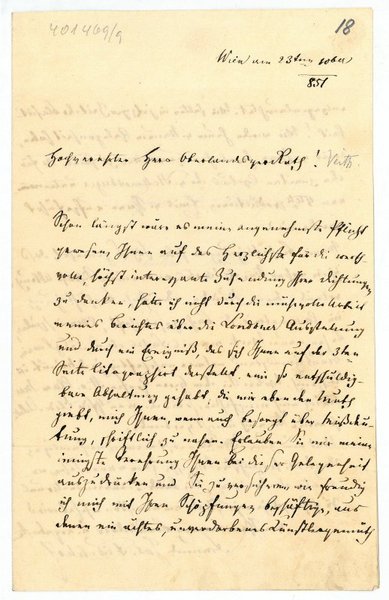 401469/9
18
Wien am 23ten 10ber
851
Hochverehrter Herr Oberlandsger Rath! Veith
Schon längst wäre es meine angenehmste Pflicht
gewesen, Ihnen auf das Herzlichste für die werth-
volle, höchst interessante Zusendung Ihrer Dichtungen
zu danken, hätte ich nicht durch die mühevolle Arbeit
meines Berichtes über die Londoner Ausstellung
und durch ein Ereigniß, das sich Ihnen auf der 3ten
Seite litographirt darstellt, eine so entschuldig-
bare Abhaltung gehabt, die mir eben den Muth
giebt, mich Ihnen, wenn auch besorgt über Mißdeu-
tung, schriftlich zu nahen. Erlauben Sie mir meine
innigste Verehrung Ihnen bei dieser Gelegenheit
auszudrücken und Sie zu versichern, wie freudig
ich mich mit Ihren Schöpfungen beschäftige, aus
denen ein ächtes, unverdorbenes Künstlergemüth